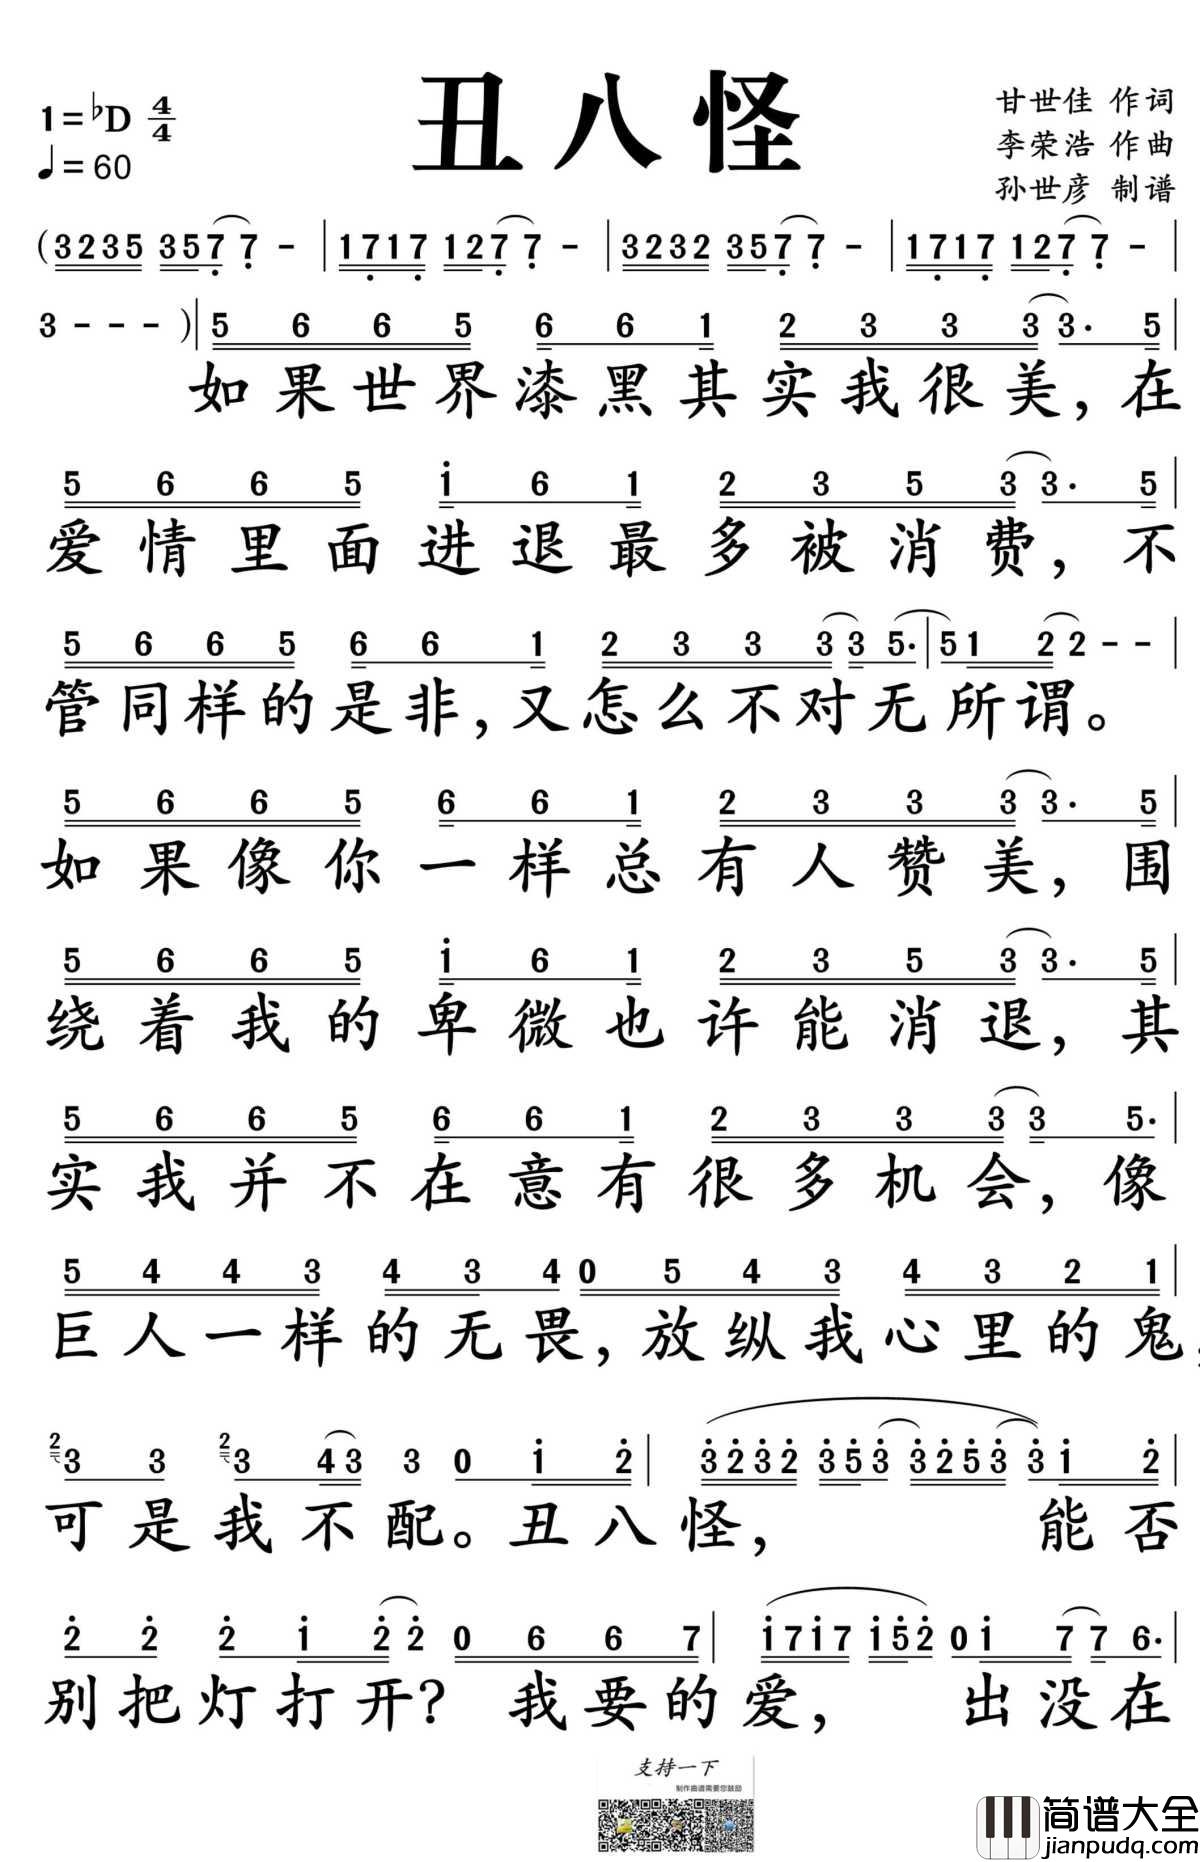 丑八怪
1=♭D 4/4
♩=60
甘世佳 作词
李荣浩 作曲
孙世彦 制谱
(3235 3577 - | 1717 1277 - | 3232 3577 - | 1717 1277 - |
3 - - - )| 5 6 6 5 6 6 1 2 3 3 3 3· 5 |
如果世界漆黑其实我很美，在
5 6 6 5 i 6 1 2 3 5 3 3· 5 |
爱情里面进退最多被消费，不
5 6 6 5 6 6 1 2 3 3 3 3 5· | 5 1 2 2 - - |
管同样的是非，又怎么不对无所谓。
5 6 6 5 6 6 1 2 3 3 3 3· 5 |
如果像你一样总有人赞美，围
5 6 6 5 i 6 1 2 3 5 3 3· 5 |
绕着我的卑微也许能消退，其
5 6 6 5 6 6 1 2 3 3 3 3 5· |
实我并不在意有很多机会，像
5 4 4 3 4 3 4 0 5 4 3 4 3 2 1 |
巨人一样的无畏，放纵我心里的鬼，
2 3 3 2 3 4 3 3 0 i 2 | 3 2 3 2 3 5 3 3 2 5 3 3 i 2 |
可是我不配。丑八怪，能否
2 2 2 i 2 2 0 6 6 7 | i 7 i 7 i 5 2 0 i 7 7 6· |
别把灯打开？我要的爱，出没在
支持一下
制作曲谱需要您鼓励
简谱大全
jianpudq.com